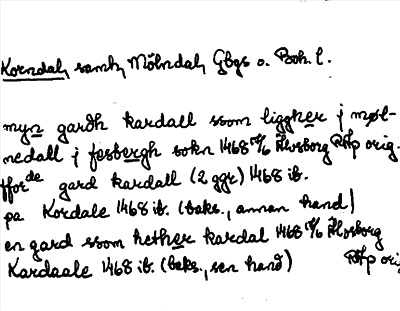 Korndal, samh, Mölndal, Gbgs o. Boh. l.
myn gardh kardall ssom liggher j møl-
nedall j fesbergh sokn 1468 Älvsborg RAp orig.
fforde gard kardall (2 ggr) 1468 ib.
pa Kordale 1468 ib. (baks., annan hand)
en gard ssom hether kardal 1468 Älvsborg
Kardaale 1468 ib. (baks., sen hand) RAp orig